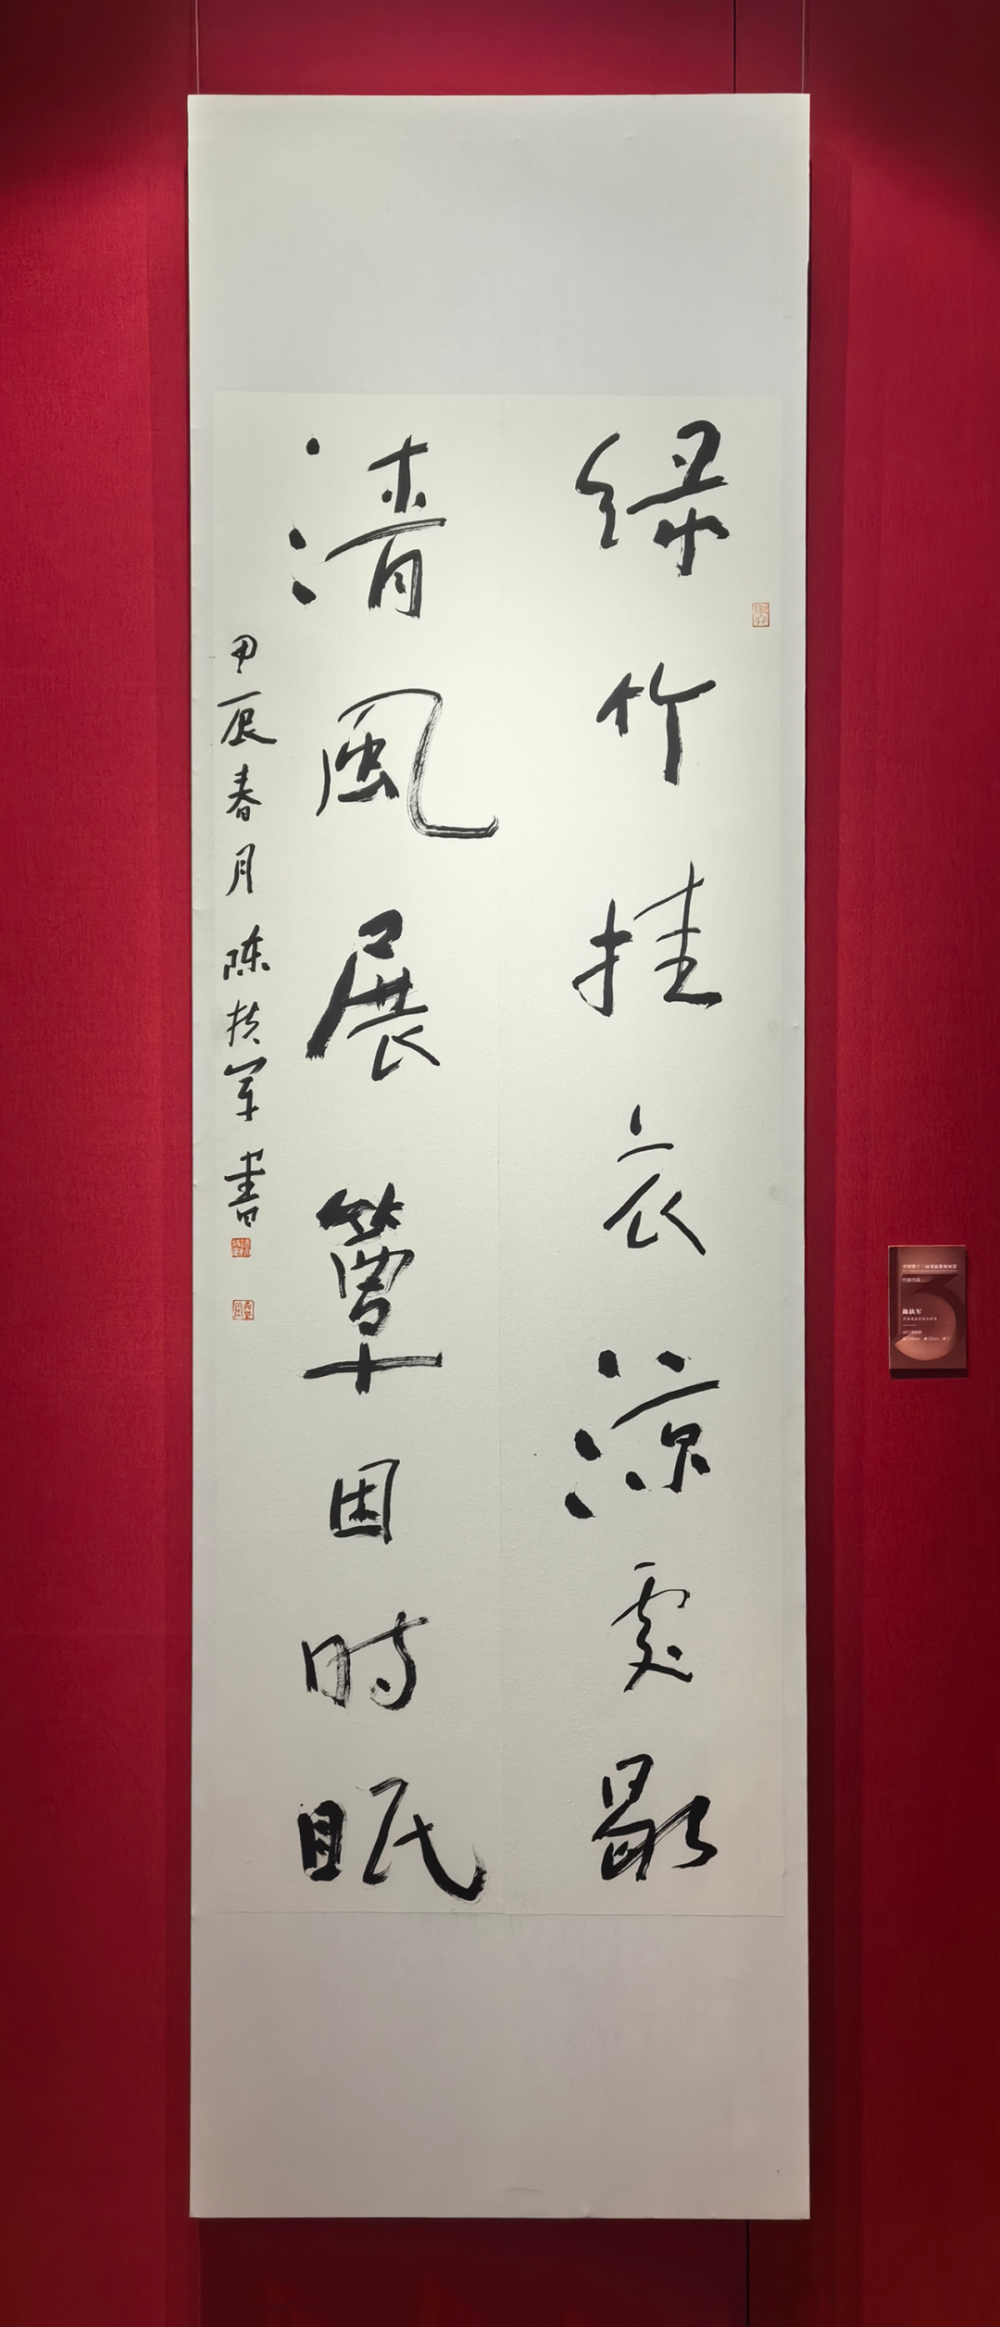 绿竹挂衣凉处歇
清風展簟困时眠
甲辰春月陈扶军书
陈扶军